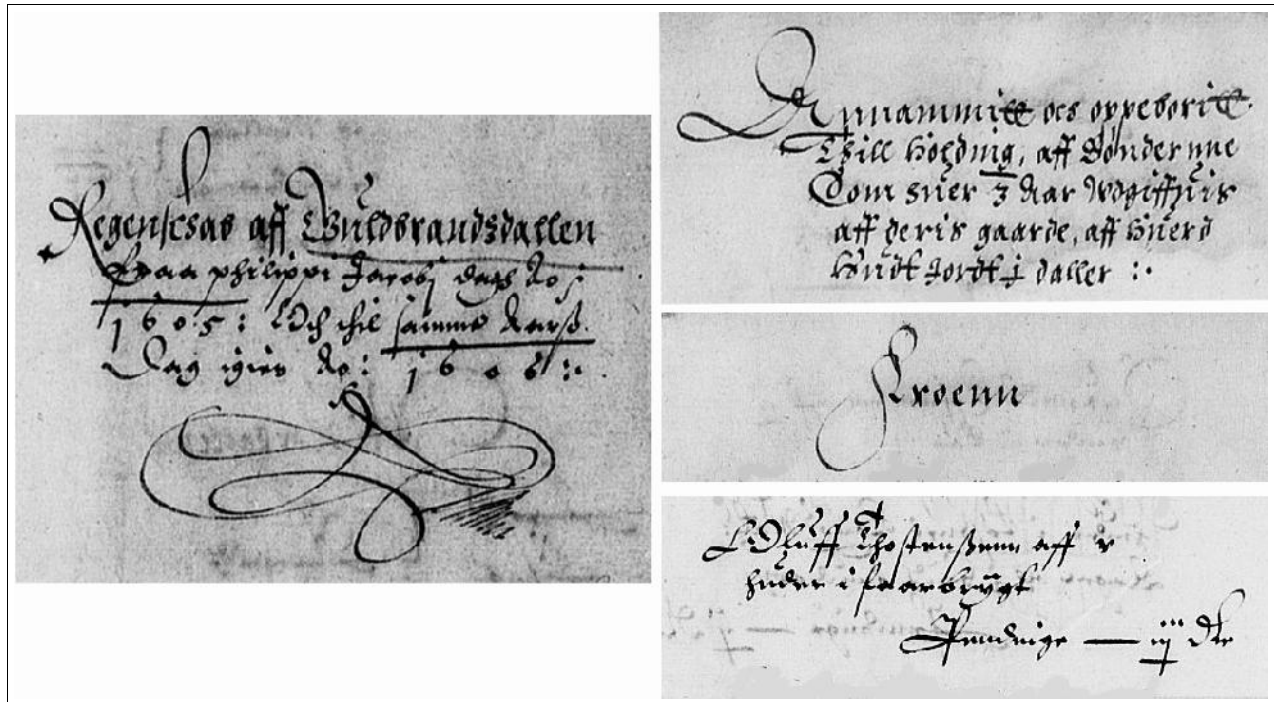 Regenscab aff Guldbrandzdallen
Fraa Philippi Jacobj dagh Ao:
1605: Och thil samme Aarß
Dag igien Ao: 1606:
Annammitt ocs oppeboritt
Thill Holdnig, aff Bøndernne
Som huer 3 Aar Wdgiffuis
aff deris gaarde, aff huerd
Hudt Jordt j daller :
Froenn
Odluff Thostenßenn aff
huder i faarbøygt
Penduige — iij dlr